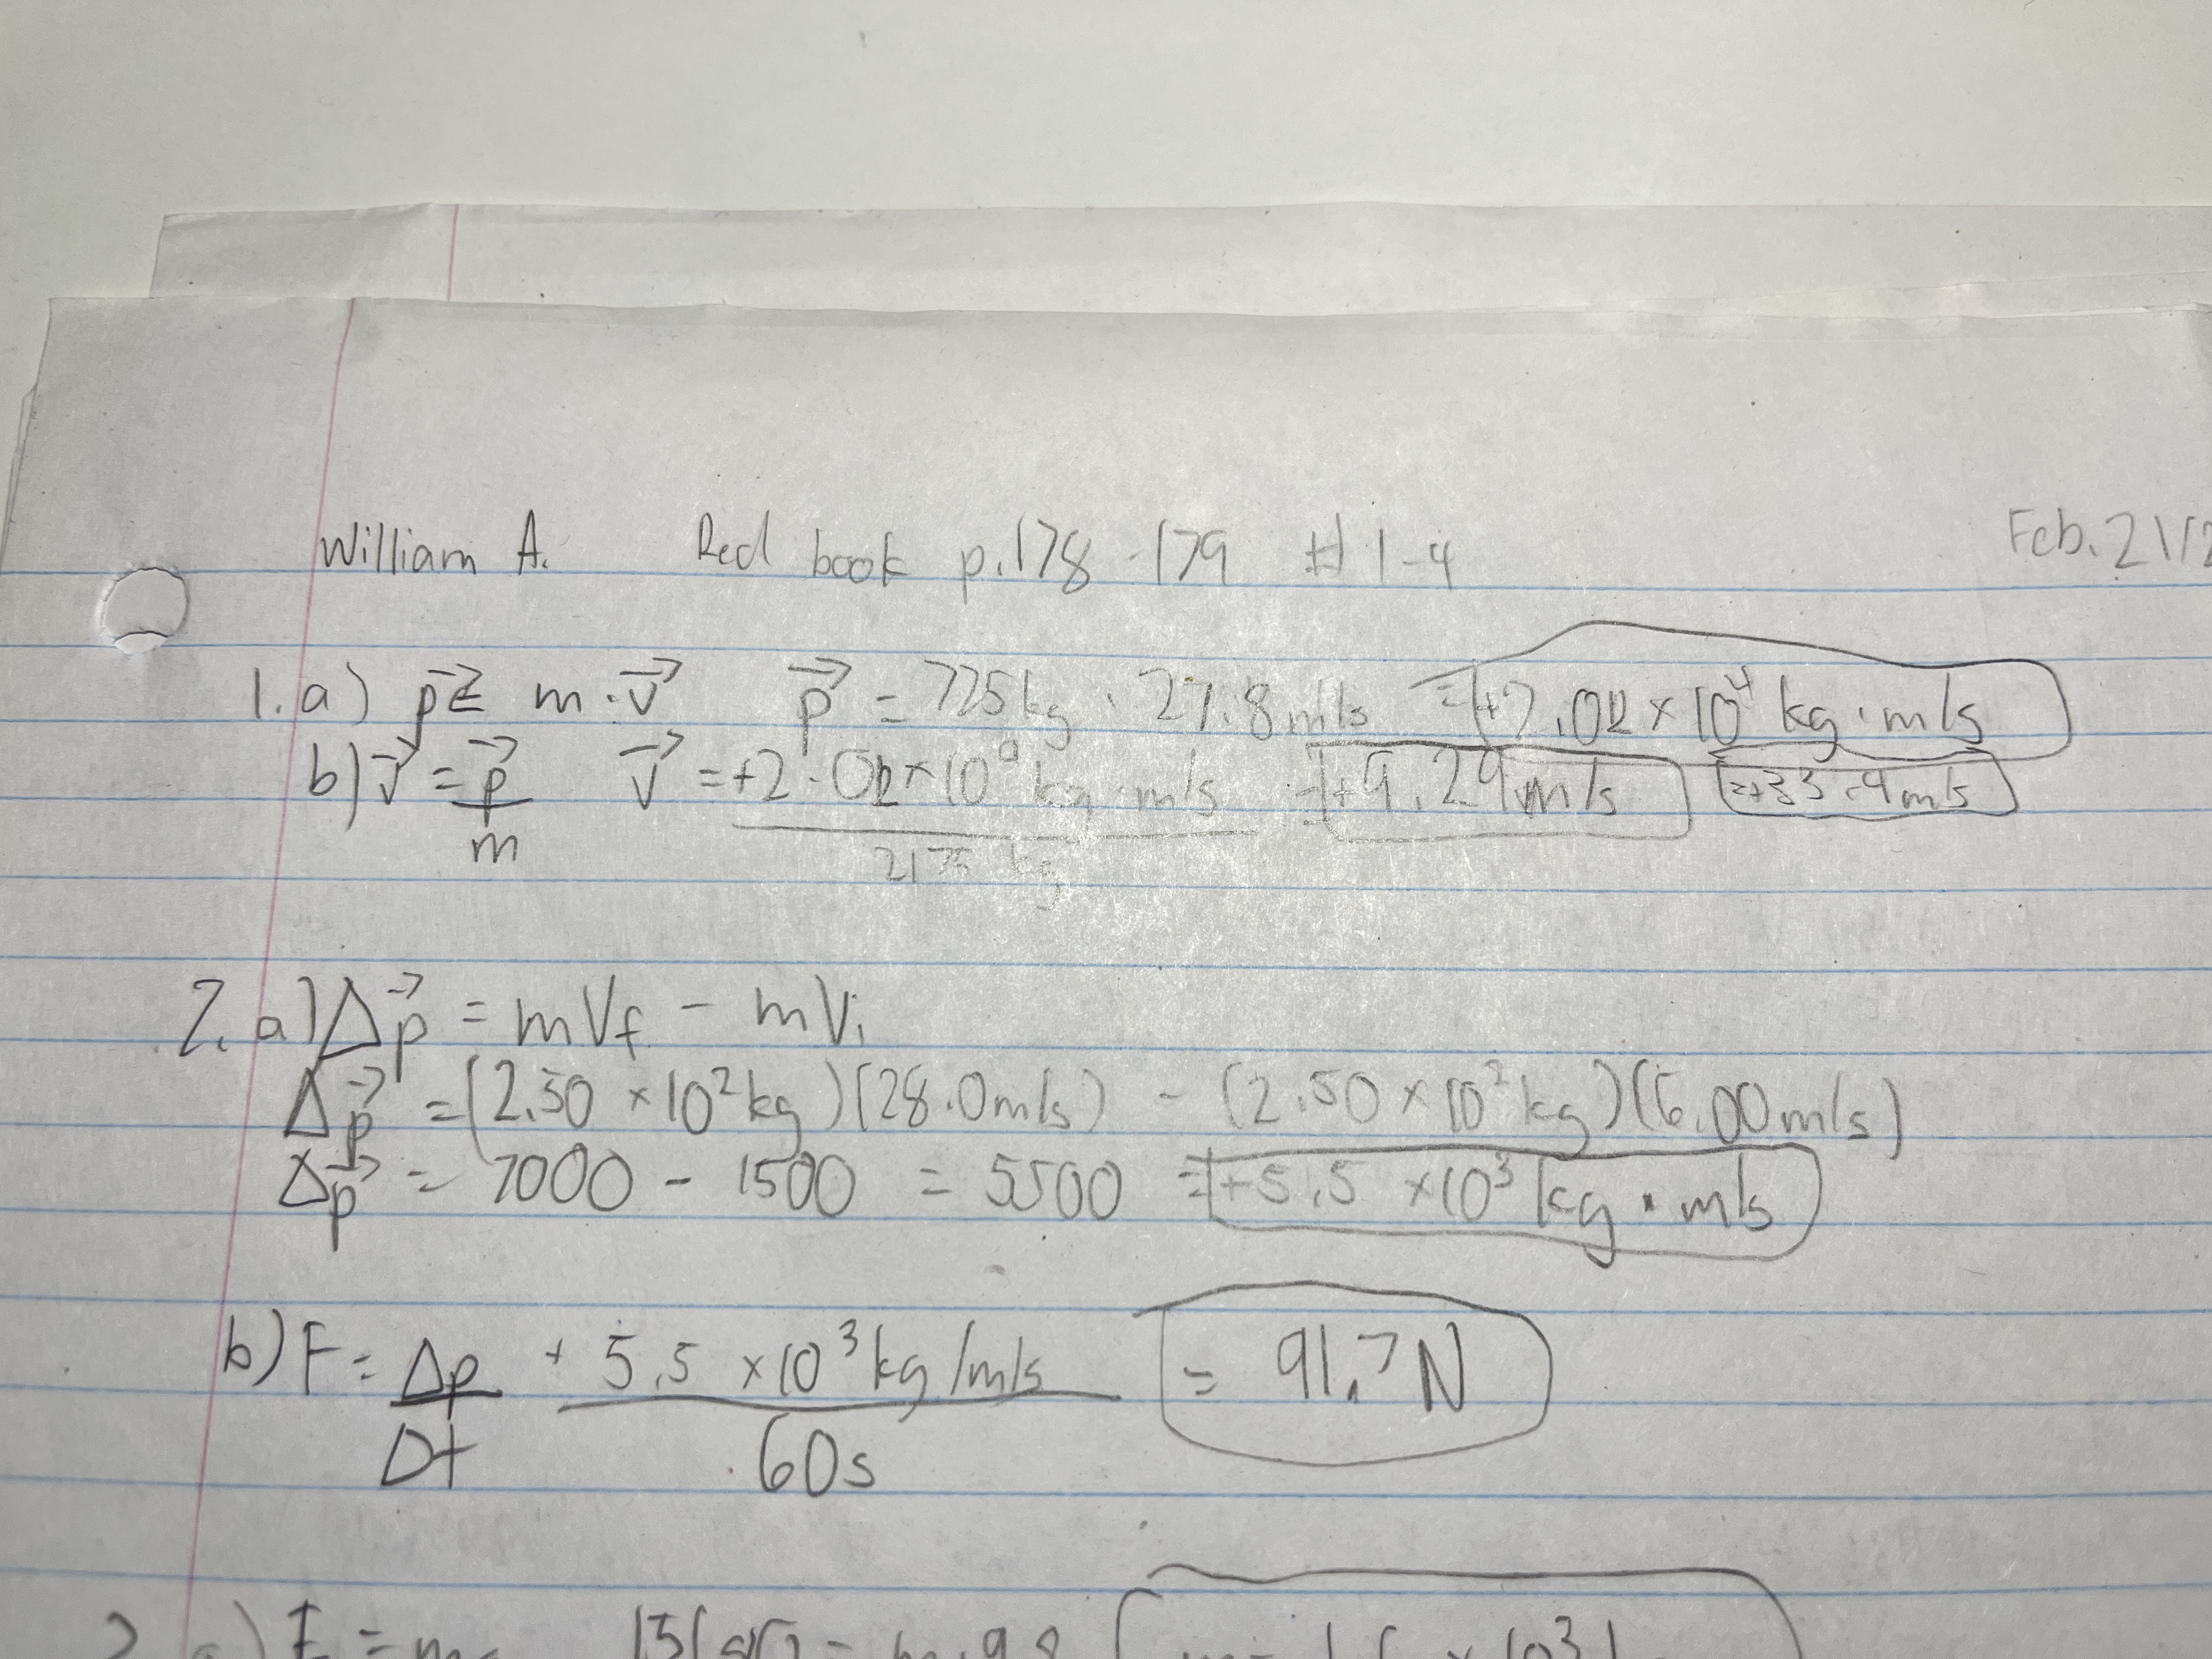 William A. Red book p.178-179 #1-4 Feb. 21/2
1. a) p⃗ = m·v⃗ p⃗ = 725kg · 27.8m/s = +2.02 × 10⁴ kg·m/s
b) v⃗ = p⃗/m v⃗ = +2.02×10⁴ kg·m/s / 2175 kg = +9.29m/s = +33.4m/s
2. a) Δp⃗ = mVf - mVi
Δp⃗ = (2.50 × 10² kg)(28.0m/s) - (2.50 × 10² kg)(6.00m/s)
Δp⃗ = 7000 - 1500 = 5500 = +5.5 × 10³ kg·m/s
b) F = Δp/Δt + 5.5 × 10³ kg/m/s / 60s = 91.7N